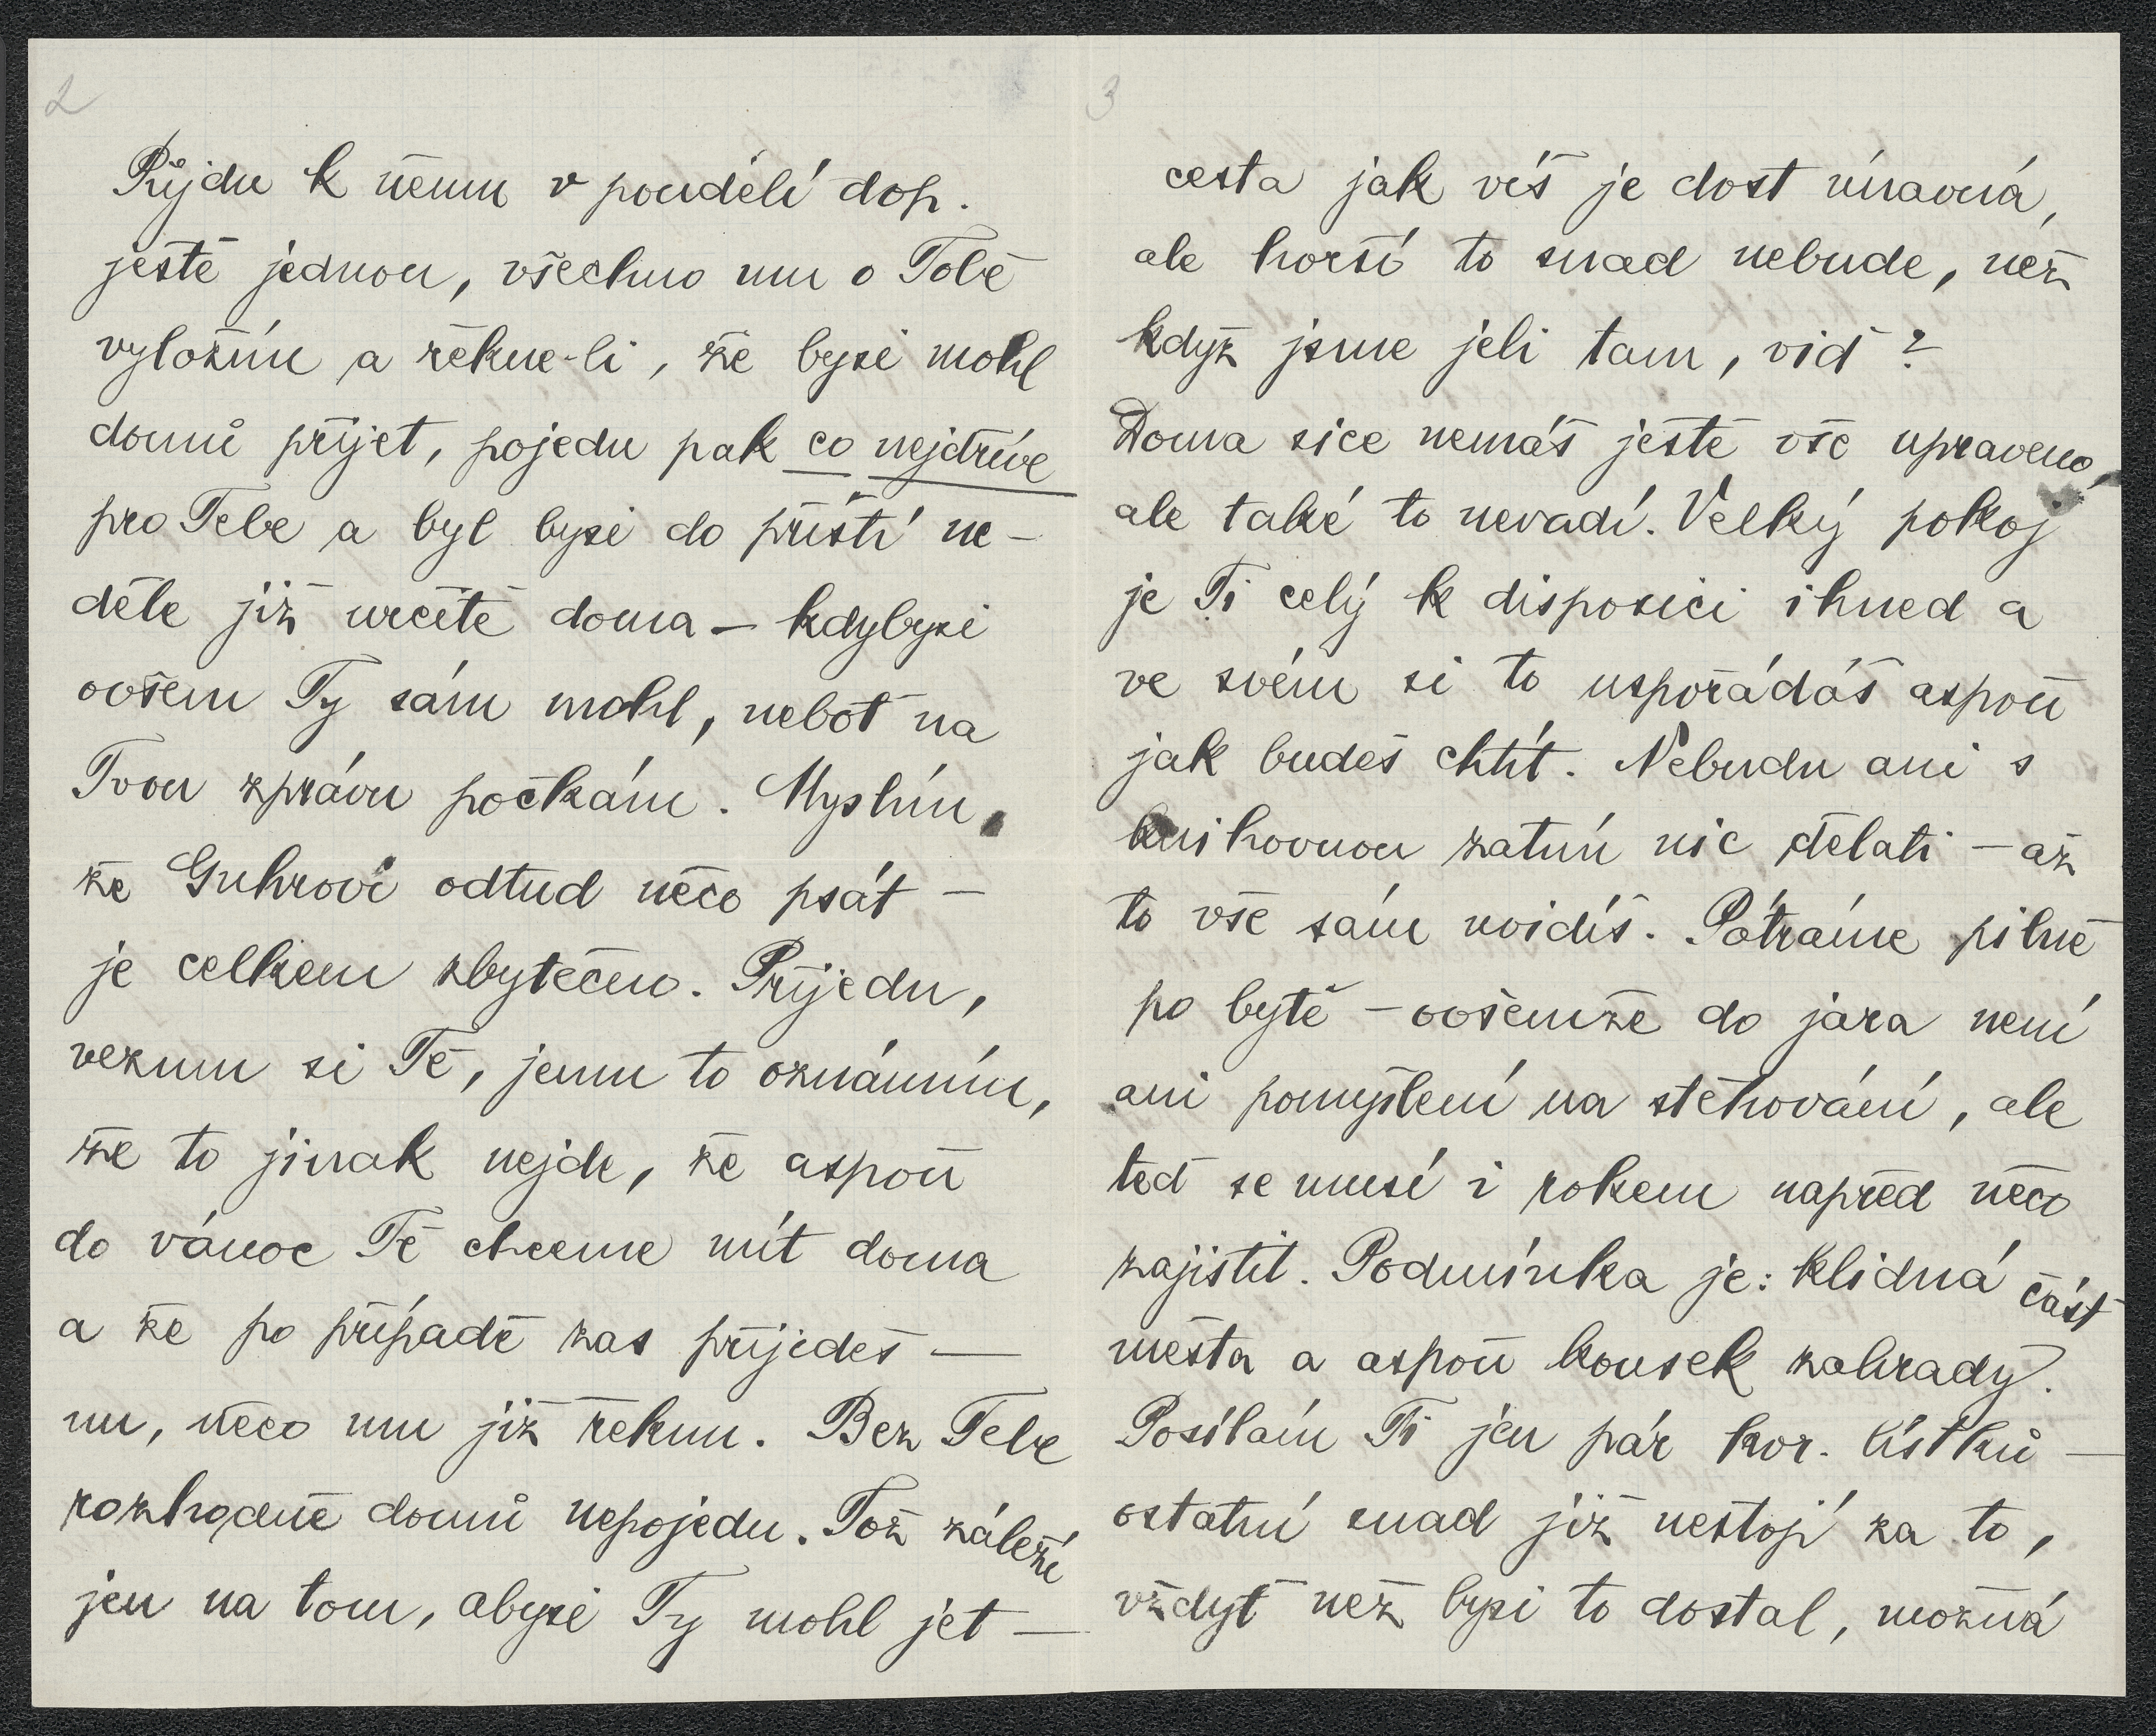 2
Půjdu k němu v pondělí dop.
ještě jednou, všechno mu o Tobě
vyložím a řekne-li, že bysi mohl
domů přijet, pojedu pak co nejdříve
pro Tebe a byl bysi do příští ne-
děle již určitě doma – kdybysi
ovšem Ty sám mohl, neboť na
Tvou zprávu počkám. Myslím,
že Guhrovi odtud něco psát –
je celkem zbytečno. Přijedu,
vezmu si Tě, jemu to oznámím,
že to jinak nejde, že aspoň
do vánoc Tě chceme mít doma
a že po případě zas přijedeš —
nu, něco mu již řeknu. Bez Tebe
rozhodně domů nepojedu. Tož záleží
jen na tom, abysi Ty mohl jet —
3
cesta jak víš je dost únavná,
ale horší to snad nebude, než
když jsme jeli tam, viď?
Doma sice nemáš ještě vše upraveno,
ale také to nevadí. Velký pokoj
je Ti celý k disposici ihned a
ve svém si to uspořádáš aspoň
jak budeš chtít. Nebudu ani s
knihovnou zatím nic dělati – až
to vše sám uvidíš. Pátráme pilně
po bytě – ovšemže do jara není
ani pomyšlení na stěhování, ale
teď se musí i rokem napřed něco
zajistit. Podmínka je: klidná část
města a aspoň kousek zahrady.
Posílám Ti jen pár kor. lístků —
ostatní snad již nestojí za to,
vždyť než bysi to dostal, možná